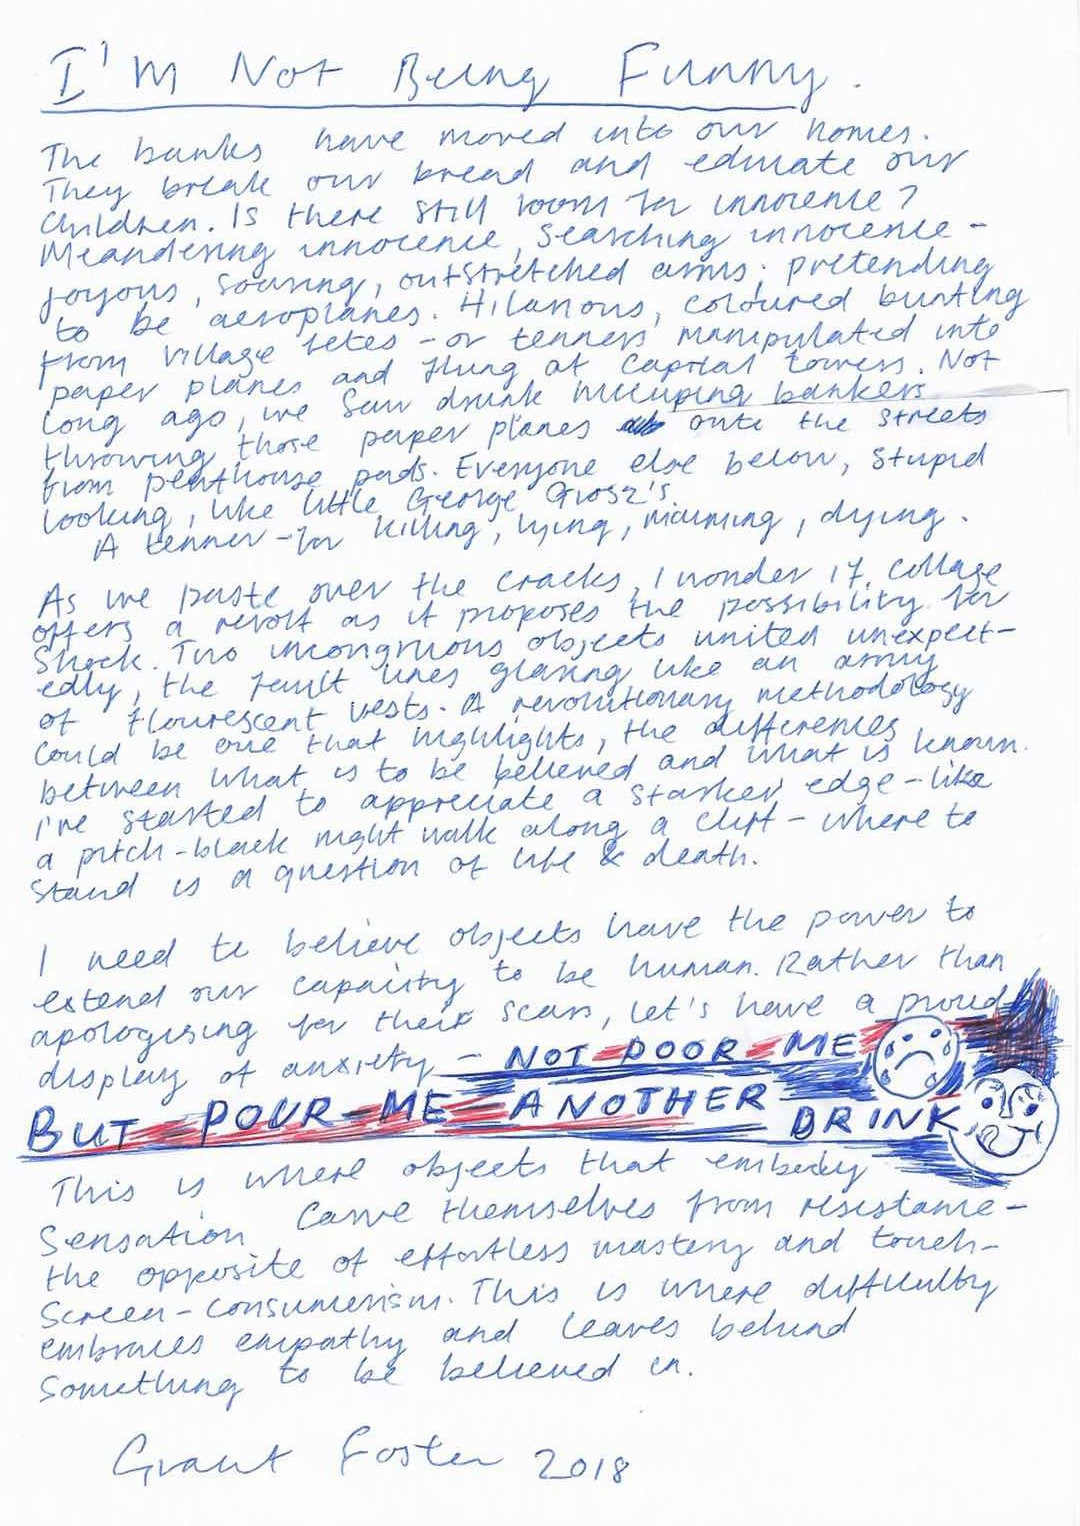 I'm Not Being Funny.
The banks have moved into our homes.
They break our bread and educate our
children. Is there still room for innocence?
Meandering innocence, searching innocence -
joyous, soaring, outstretched arms; pretending
to be aeroplanes. Hilarious, coloured bunting
from village fetes - or tenners manipulated into
paper planes and flung at Capital towers. Not
long ago, we saw drunk hiccuping bankers
throwing those paper planes onto the streets
from penthouse pads. Everyone else below, stupid
looking, like little George Grosz's.
A tenner - for killing, lying, maiming, dying.
As we paste over the cracks, I wonder if collage
offers a revolt as it proposes the possibility for
shock. Two incongruous objects united unexpect-
edly, the fault lines glaring like an army
of flourescent vests. A revolutionary methodology
could be one that highlights, the differences
between what is to be believed and what is known.
I've started to appreciate a starker edge - like
a pitch-black night walk along a cliff - where to
stand is a question of life & death.
I need to believe objects have the power to
extend our capacity to be human. Rather than
apologising for their scars, let's have a proud
display of anxiety - NOT POOR ME
BUT POUR ME ANOTHER DRINK
This is where objects that embody
sensation carve themselves from resistance -
the opposite of effortless mastery and touch-
screen-consumerism. This is where difficulty
embraces empathy and leaves behind
something to be believed in.
Grant Foster 2018